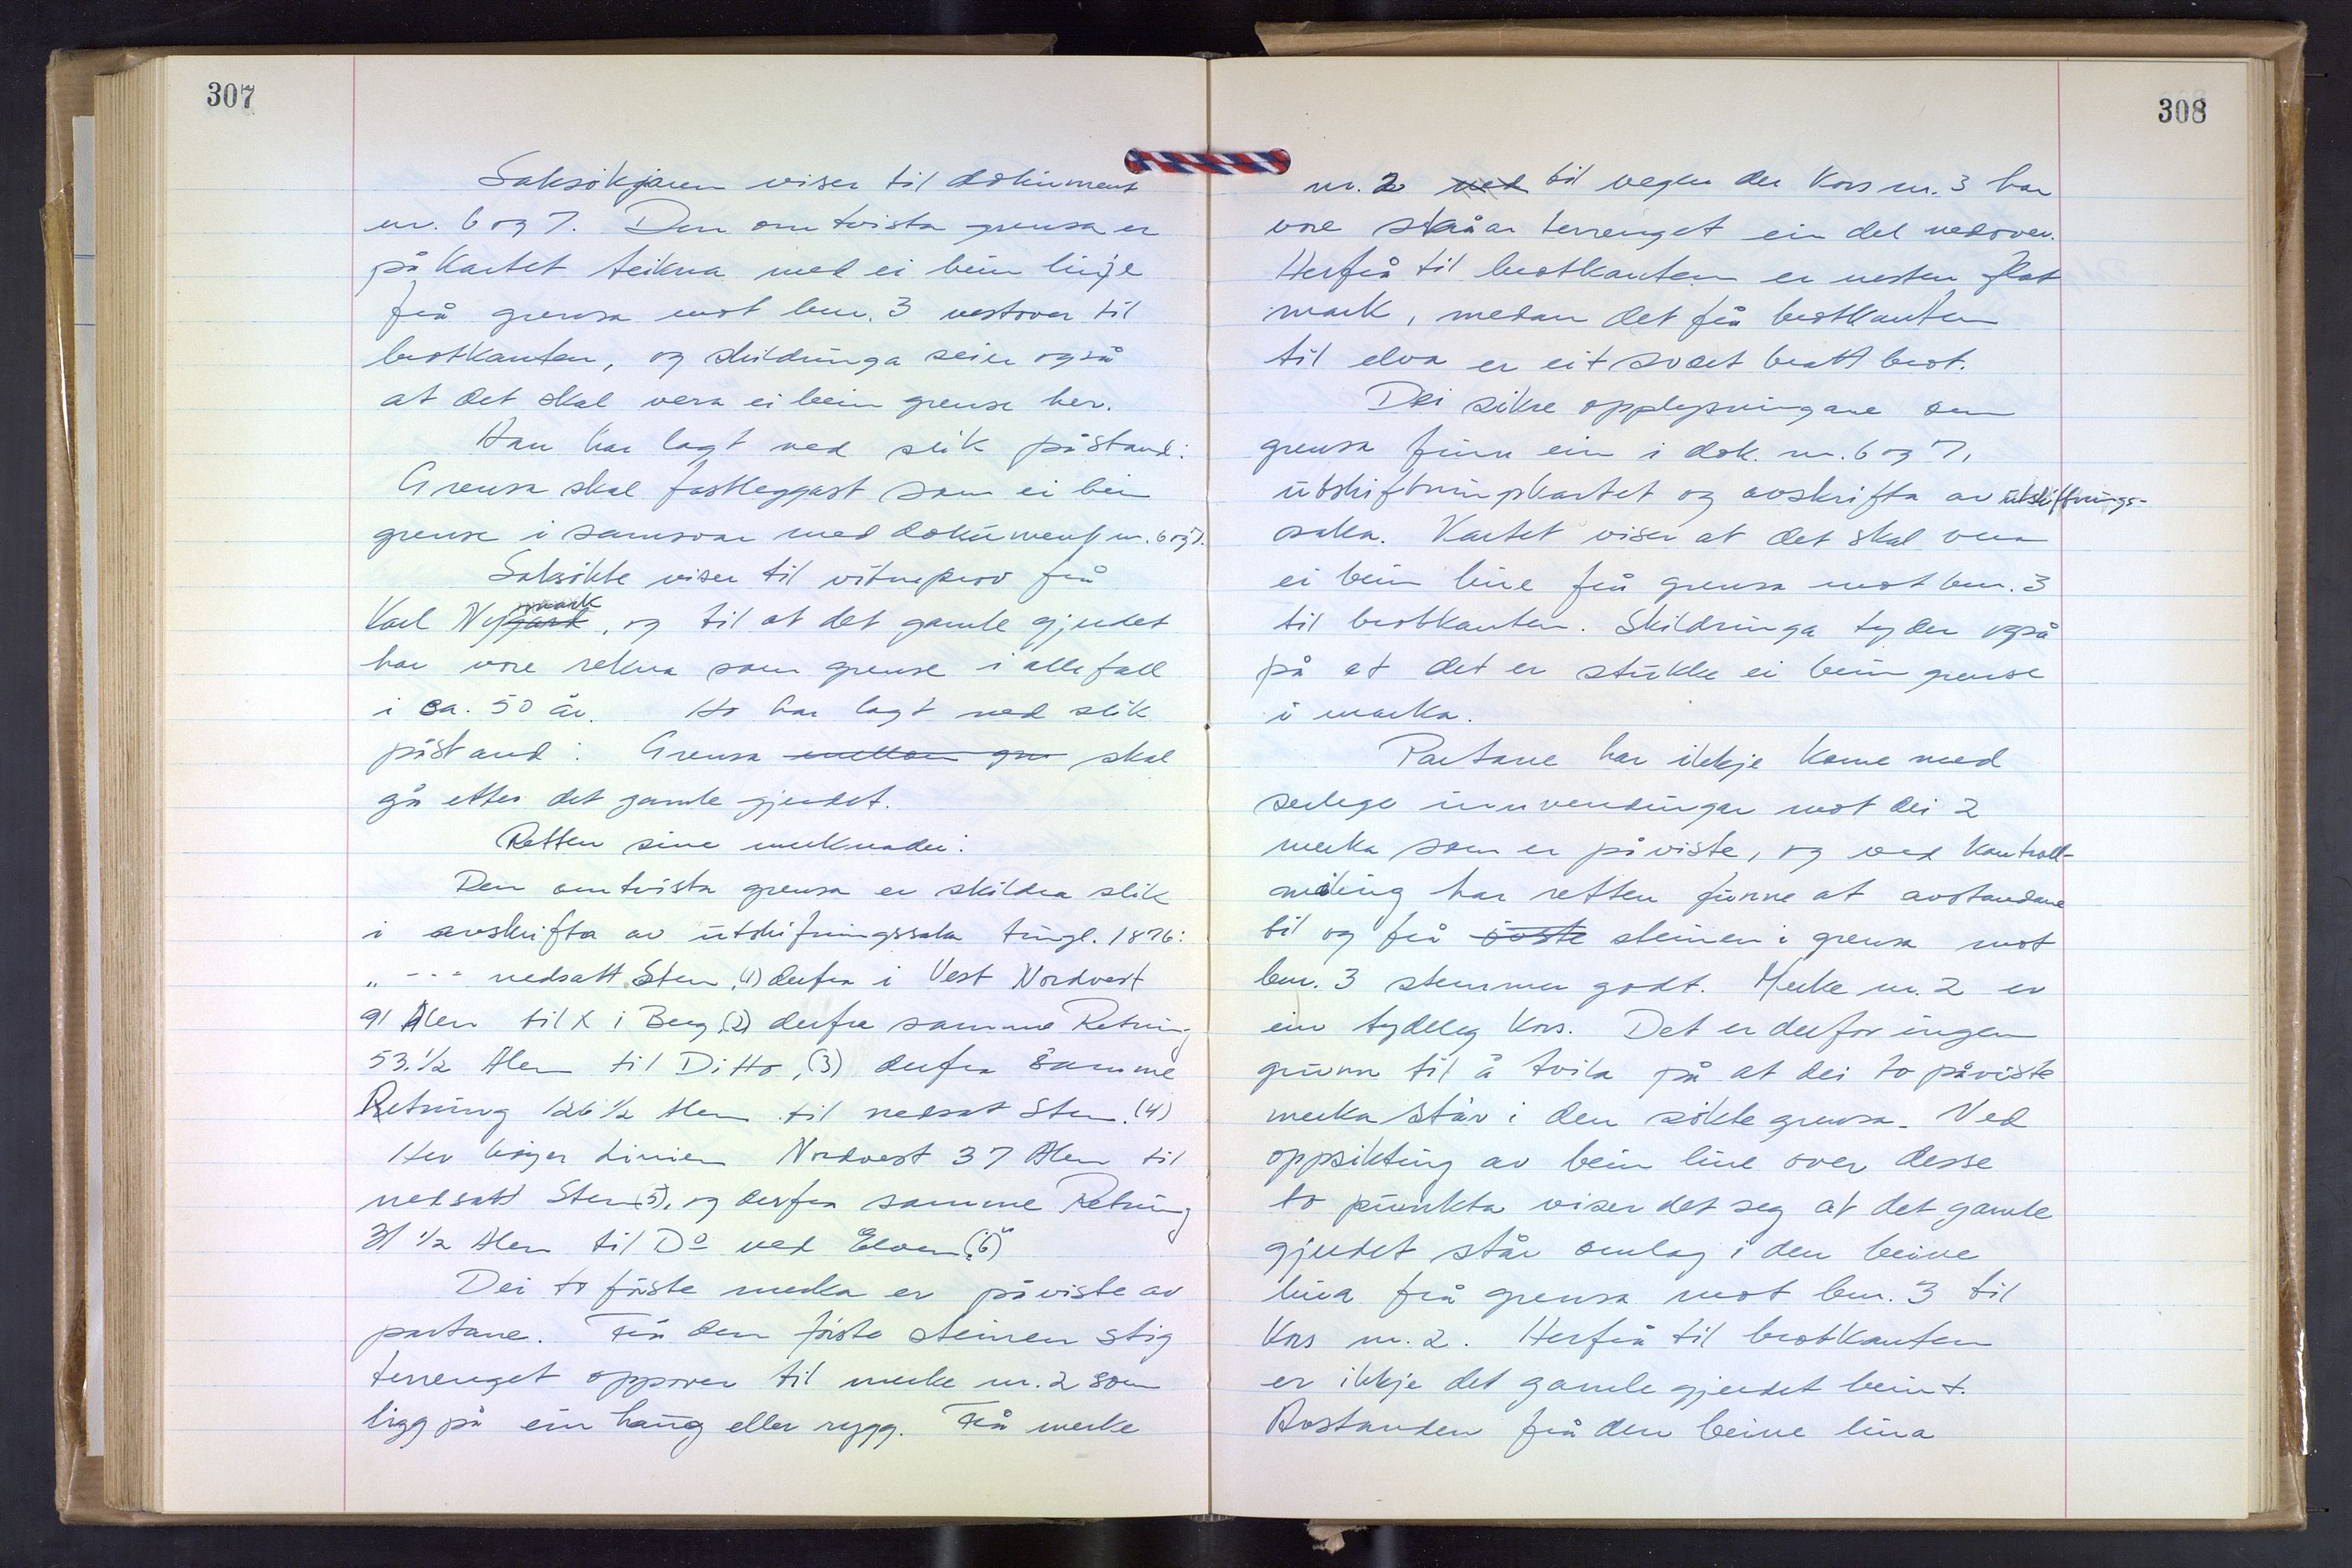 307
Saksökjaren viser til dokument
nr. 6 og 7. Den omtvista grensa er
på kartet teikna med ei bein linje
frå grensa mot bnr. 3 vestover til
brotkanten, og skildringa seier også
at det skal vera ei bein grense her.
Han har lagt ned slik påstand:
Grensa skal fastleggast som ei bein
grense i samsvar med dokument nr. 6 og 7.
Saksökte viser til vitneprov frå
Karl Nymark, og til at det gamle gjerdet
har vore rekna som grense i alle fall
i ca. 50 år. Ho har lagt ned slik
påstand: Grensa mellom gre skal
gå etter det gamle gjerdet.
Retten sine merknader:
Den omtvista grensa er skildra slik
i avskrifta av utskiftningssaka tingl. 1876:
„ --- nedsatt Sten, (1) derfra i Vest Nordvest
91 Alen til X i Berg, (2) derfra samme Retning
53.1/2 Alen til Ditto, (3) derfra samme
Retning 126 1/2 Alen til nedsat Sten. (4)
Her böyer Linien Nordvest 37 Alen til
nedsatt Sten (5), og derfra samme Retning
31 1/2 Alen til Do ved Elven. (6)"
Dei to förste merka er påviste av
partane. Frå den förste steinen stig
terrenget oppover til merke nr. 2 som
ligg på ein haug eller rygg. Frå merke
308
nr. 2 ned til vegen der Kors nr. 3 har
vore skåar terrenget ein del nedover.
Herfrå til brotkanten er nesten flat
mark, medan det frå brotkanten
til elva er eit svært bratt brot.
Dei sikre opplysningane om
grensa finn ein i dok. nr. 6 og 7,
utskiftningskartet og avskrifta av utskiftnings-
saka. Kartet viser at det skal vera
ei bein line frå grensa mot bnr. 3
til brotkanten. Skildringa tyder også
på at det er stukke ei bein grense
i marka.
Partane har ikkje kome med
serlege innvendingar mot dei 2
merka som er påviste, og ved kontroll-
måling har retten funne at avstandane
til og frå öoste steinen i grensa mot
bnr. 3 stemmer godt. Merke nr. 2 er
ein tydeleg Kors. Det er derfor ingen
grunn til å tvila på at dei to påviste
merka står i den sökte grensa. Ved
oppsikting av bein line over desse
to punkta viser det seg at det gamle
gjerdet står omlag i den beine
lina frå grensa mot bnr. 3 til
Kors nr. 2. Herfrå til brotkanten
er ikkje det gamle gjerdet beint.
Avstanden frå den beine lina